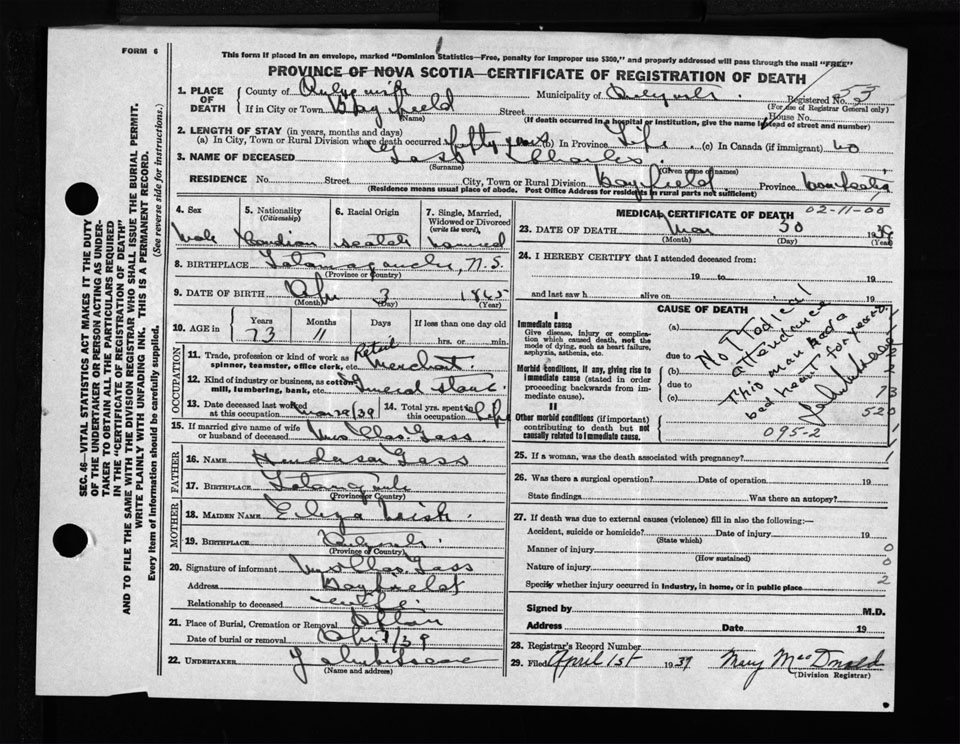 FORM 6
This form if placed in an envelope, marked "Dominion Statistics—Free, penalty for improper use $300," and properly addressed will pass through the mail "FREE"
PROVINCE OF NOVA SCOTIA—CERTIFICATE OF REGISTRATION OF DEATH
1. PLACE OF DEATH County of Municipality of Registered No. 53
(For use of Registrar General only)
If in City or Town Bayfield Street House No.
(Name) (If death occurred in a hospital or institution, give the name instead of street and number)
2. LENGTH OF STAY (in years, months and days)
(a) In City, Town or Rural Division where death occurred fifty years (b) In Province Life (c) In Canada (if immigrant)
3. NAME OF DECEASED Gass Charles
(Surname) (Given name or names)
RESIDENCE No. Street City, Town or Rural Division Bayfield Province
(Residence means usual place of abode. Post Office Address for residents in rural parts not sufficient)
4. Sex 5. Nationality (Citizenship) 6. Racial Origin 7. Single, Married, Widowed or Divorced (write the word)
Male Canadian Scotch Married
8. BIRTHPLACE Tatamagouche, N.S.
(Province or Country)
9. DATE OF BIRTH Apr 3 1865
(Month) (Day) (Year)
10. AGE in Years Months Days If less than one day old
73 11 hrs. or min.
OCCUPATION
11. Trade, profession or kind of work as spinner, teamster, office clerk, etc. Retail Merchant
12. Kind of industry or business, as cotton mill, lumbering, bank, etc. General Store
13. Date deceased last worked at this occupation Mar 29/39 14. Total yrs. spent in this occupation Life
15. If married give name of wife or husband of deceased Mrs Chas. Gass
FATHER
16. NAME Henderson Gass
17. BIRTHPLACE
(Province or Country)
MOTHER
18. MAIDEN NAME Eliza
19. BIRTHPLACE
(Province or Country)
20. Signature of informant Mrs Chas. Gass
Address Bayfield
Relationship to deceased wife
21. Place of Burial, Cremation or Removal Afton
Date of burial or removal Apr 1/39
22. UNDERTAKER
(Name and address)
MEDICAL CERTIFICATE OF DEATH 02-11-00
23. DATE OF DEATH Mar 30 1939
(Month) (Day) (Year)
24. I HEREBY CERTIFY that I attended deceased from:
19 to 19
and last saw h alive on 19
CAUSE OF DEATH
I
Immediate cause
Give disease, injury or complication which caused death, not the mode of dying, such as heart failure, asphyxia, asthenia, etc.
(a)
due to
Morbid conditions, if any, giving rise to immediate cause (stated in order proceeding backwards from immediate cause).
(b)
due to
(c)
No Medical attendance
This man had a bad heart for years.
II
Other morbid conditions (if important) contributing to death but not causally related to immediate cause.
2
73
520
095-2
1
25. If a woman, was the death associated with pregnancy? 1
26. Was there a surgical operation? Date of operation 19
State findings Was there an autopsy?
27. If death was due to external causes (violence) fill in also the following:—
Accident, suicide or homicide? Date of injury 19
(State which)
Manner of injury 0
(How sustained)
Nature of injury 0
Specify whether injury occurred in industry, in home, or in public place 2
Signed by M.D.
Address Date 19
28. Registrar's Record Number
29. Filed April 1st 1939 Mary MacDonald
(Division Registrar)
SEC. 46—VITAL STATISTICS ACT MAKES IT THE DUTY OF THE UNDERTAKER OR PERSON ACTING AS UNDERTAKER TO OBTAIN ALL THE PARTICULARS REQUIRED IN THE "CERTIFICATE OF REGISTRATION OF DEATH" AND TO FILE THE SAME WITH THE DIVISION REGISTRAR WHO SHALL ISSUE THE BURIAL PERMIT.
WRITE PLAINLY WITH UNFADING INK. THIS IS A PERMANENT RECORD.
Every item of information should be carefully supplied. (See reverse side for instructions.)